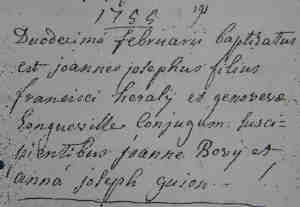 1755
Duodecimo februarii baptizatus
est joannes josephus filius
francisci heraly et genovevæ
Longueville Conjugum. susci-
pientibus joanne Bovÿ et
anná joseph guion.